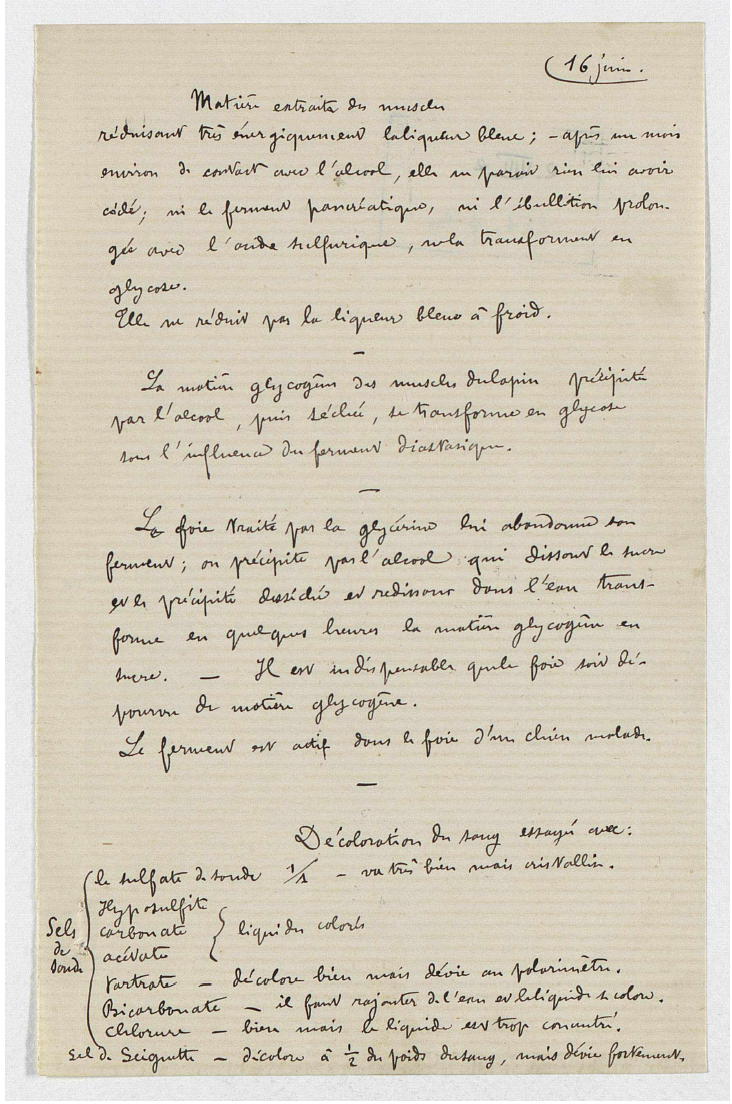 16 juin.
Matière extraite des muscles
réduisant très énergiquement la liqueur bleue ; – après un mois
environ de contact avec l'alcool, elle ne paraît rien lui avoir
cédé ; ni le ferment pancréatique, ni l'ébullition prolon-
gée avec l'acide sulfurique, ne la transforment en
glycose.
Elle ne réduit pas la liqueur bleue à froid.
–
La matière glycogène des muscles du lapin précipitée
par l'alcool, puis séchée, se transforme en glycose
sous l'influence du ferment diastasique.
–
Le foie traité par la glycérine lui abandonne son
ferment ; on précipite par l'alcool qui dissout le sucre
et le précipité desséché et redissous dans l'eau trans-
forme en quelques heures la matière glycogène en
sucre. — Il est indispensable que le foie soit dé-
pourvu de matière glycogène.
Le ferment est actif dans le foie d'un chien malade.
–
Décoloration du sang essayée avec :
le sulfate de soude 1/1 – va très bien mais cristallin.
Hyposulfite
carbonate } liquides colorés
acétate
Sels de soude
tartrate – décolore bien mais dévie au polarimètre.
Bicarbonate – il faut rajouter de l'eau et le liquide se colore.
chlorure – bien mais le liquide est trop concentré.
Sel de Seignette – décolore à 1/2 du poids du sang, mais dévie fortement.